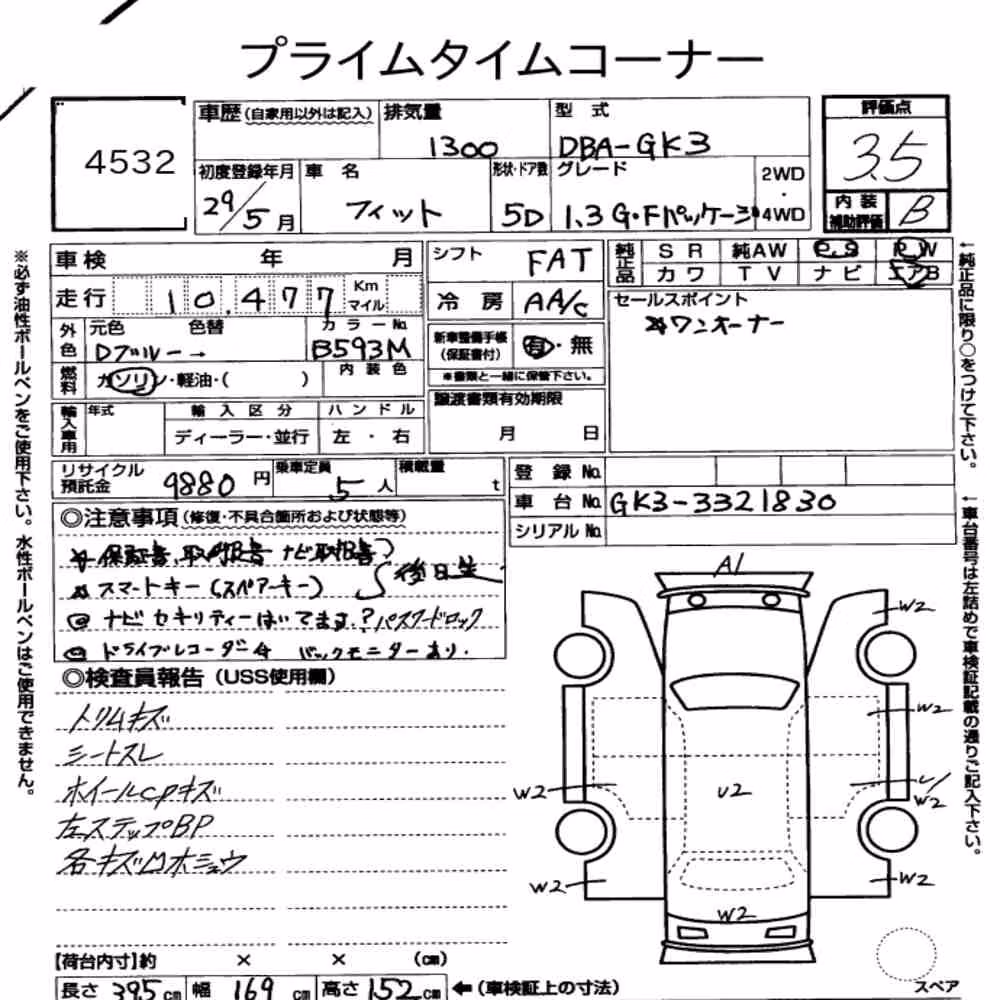 プライムタイムコーナー
4532
車歴(自家用以外は記入) 排気量 1300
型式 DBA-GK3
評価点 3.5
初度登録年月 29/5月
車名 フィット
形状・ドア数 5D
グレード 1.3 G・Fパッケージ
2WD・4WD
内装補助評価 B
車検 年 月
シフト FAT
純正品 SR 純AW P.S P.W
カワ TV ナビ エアB
走行 10,477 Km マイル
冷房 AA/C
セールスポイント
※ワンオーナー
外色 元色 色替 カラーNo.
Dブルー→ B593M
新車整備手帳(保証書付) 有・無
※書類と一緒に保管下さい。
燃料 ガソリン・軽油・( )
内装色
譲渡書類有効期限
月 日
輸入車用 年式 輸入区分 ハンドル
ディーラー・並行 左・右
リサイクル預託金 9880円
乗車定員 5人
積載量 t
登録No.
車台No. GK3-3321830
シリアルNo.
◎注意事項(修復・不具合箇所および状態等)
※保証書、取説報告 ナビ取報書
後日生
※スマートキー(スペアーキー)
◎ナビ セキリティーはいてます.?パスワードロック
◎ドライブレコーダー バックモニターあり.
◎検査員報告(USS使用欄)
トリムキズ
シートスレ
ホイールCPキズ
左ステップBP
各キズ凹ホシュウ
A1
W2
W2
U2
W2
U1
W2
W2
W2
W2
【荷台内寸】約 × × (cm)
長さ 395cm 幅 169cm 高さ 152cm ←(車検証上の寸法)
スペア
※必ず油性ボールペンをご使用下さい。水性ボールペンはご使用できません。
←純正品に限り○をつけて下さい。
←車台番号は左詰めで車検証記載の通りご記入下さい。